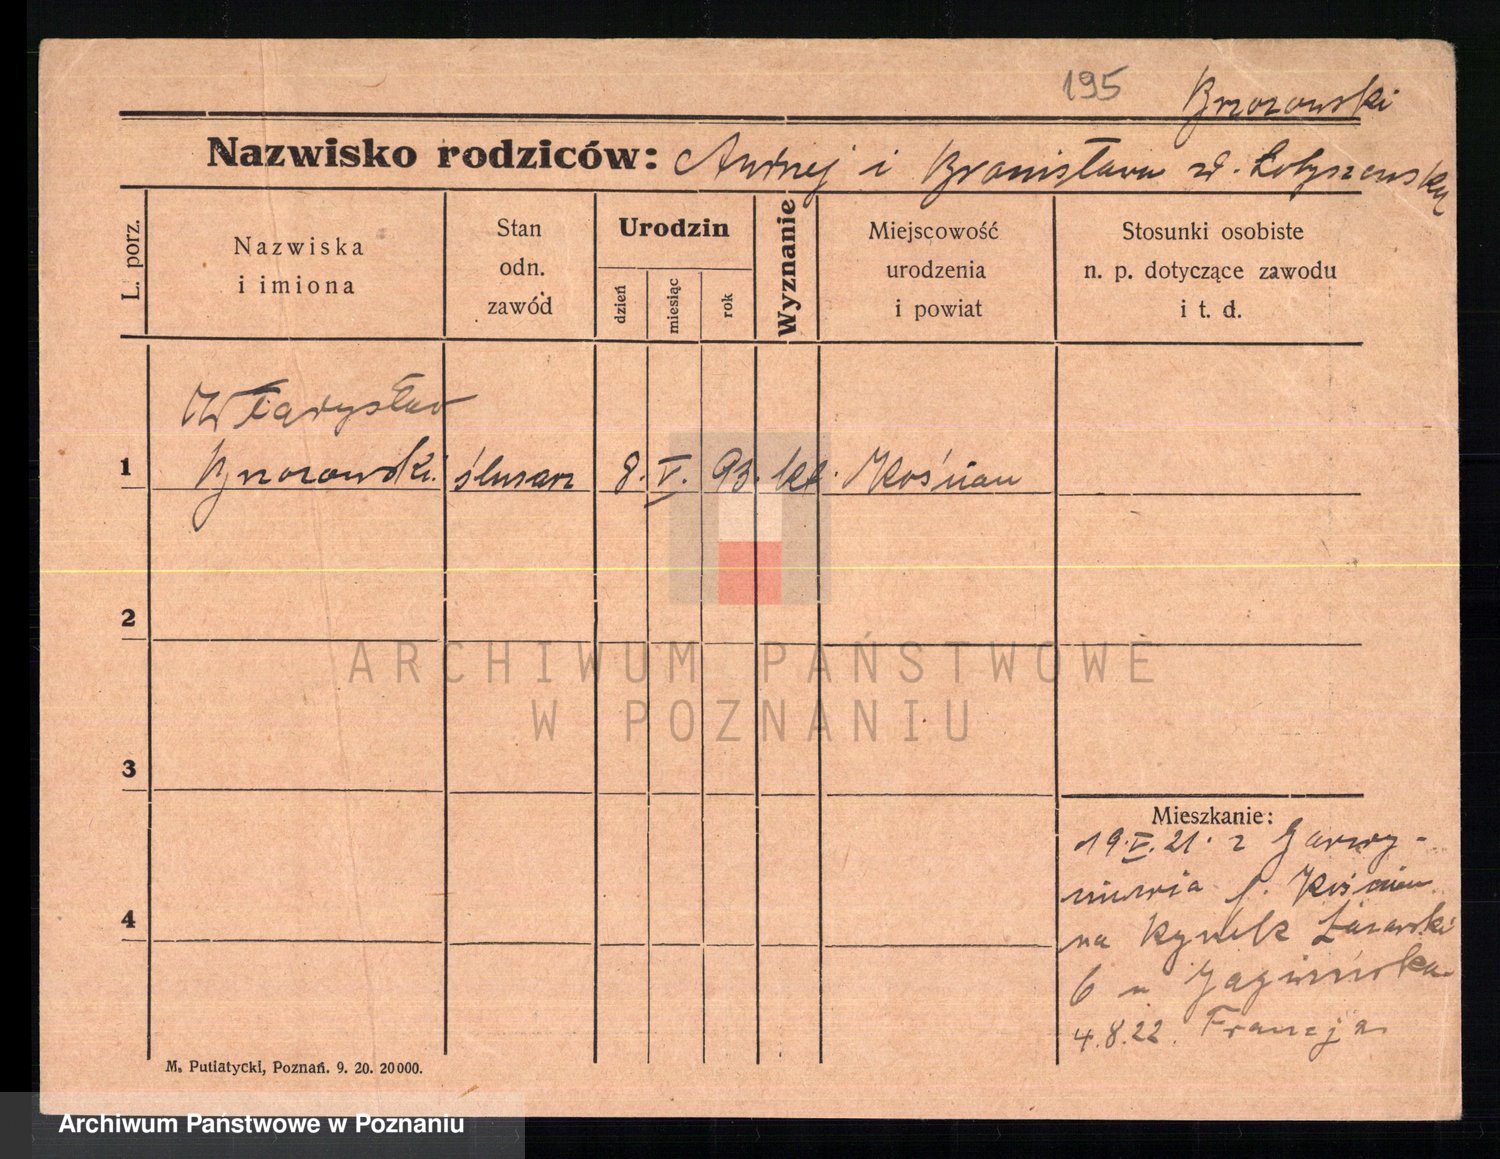 195 Brzozowski
Nazwisko rodziców: Andrzej i Bronisława zd. Łożyszewska
L. porz.
Nazwiska
i imiona
Stan
odn.
zawód
Urodzin
dzień
miesiąc
rok
Wyznanie
Miejscowość
urodzenia
i powiat
Stosunki osobiste
n. p. dotyczące zawodu
i t. d.
Władysław
1 Brzozowski ślusarz 8. V. 93. kt. Kościan
2
3
4
Mieszkanie:
19.V.21. z
p. Kościan
na Rynek Łazarski
6 u
4.8.22. Francja
M. Putiatycki, Poznań. 9. 20. 20 000.
ARCHIWUM PAŃSTWOWE
W POZNANIU
Archiwum Państwowe w Poznaniu